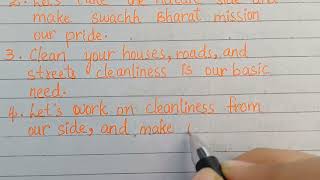 2. Let's take the nature side and
make swachh Bharat mission
our pride.
3. Clean your houses, roads, and
streets cleanliness is our basic
need.
4. Let's work on cleanliness from
our side, and make